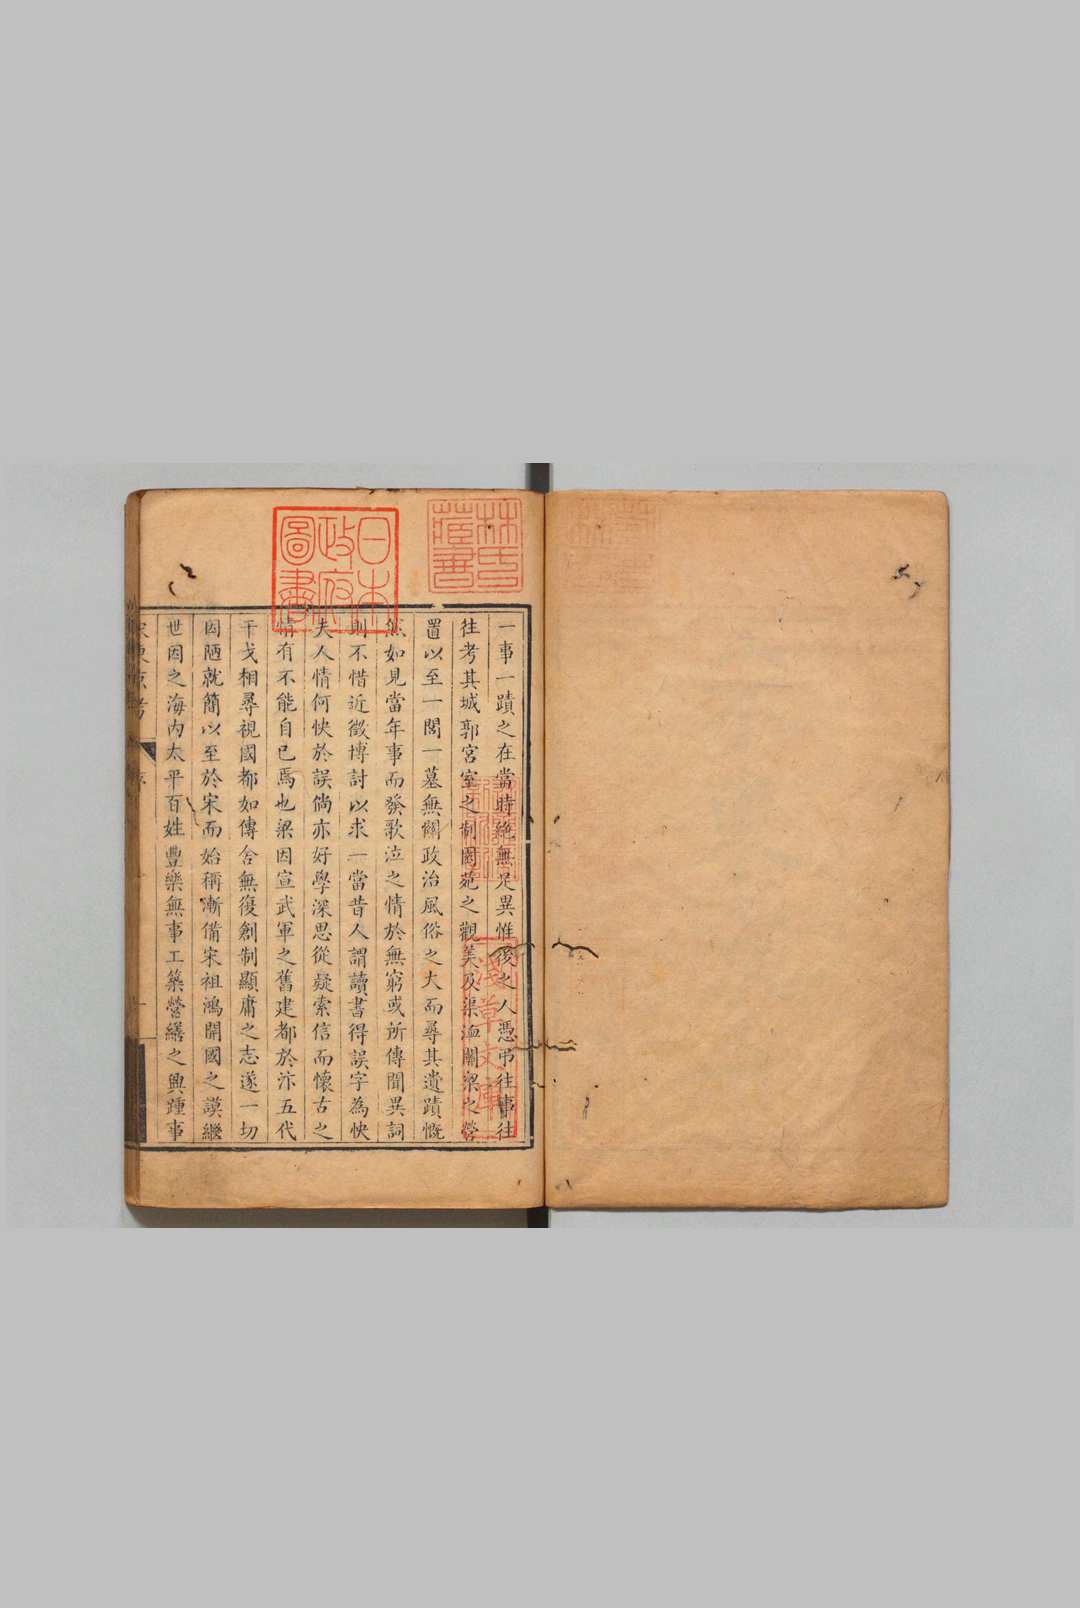 一事一蹟之在當時絶無足異惟後之人憑弔往事往
往考其城郭宮室之制園苑之觀美及渠洫關梁之營
置以至一閭一墓無關政治風俗之大而尋其遺蹟慨
然如見當年事而發歌泣之情於無窮或所傳聞異詞
則不惜近徵博討以求一當昔人謂讀書得誤字為快
夫人情何快於誤倘亦好學深思從疑索信而懷古之
情有不能自已焉也梁因宣武軍之舊建都於汴五代
干戈相尋視國都如傳舍無復創制顯庸之志遂一切
因陋就簡以至於宋而始稱漸備宋祖鴻開國之謨繼
世因之海内太平百姓豐樂無事工築營繕之興踵事
宋東京考
序
日本
政府
圖書
林氏
藏書
淺草文庫